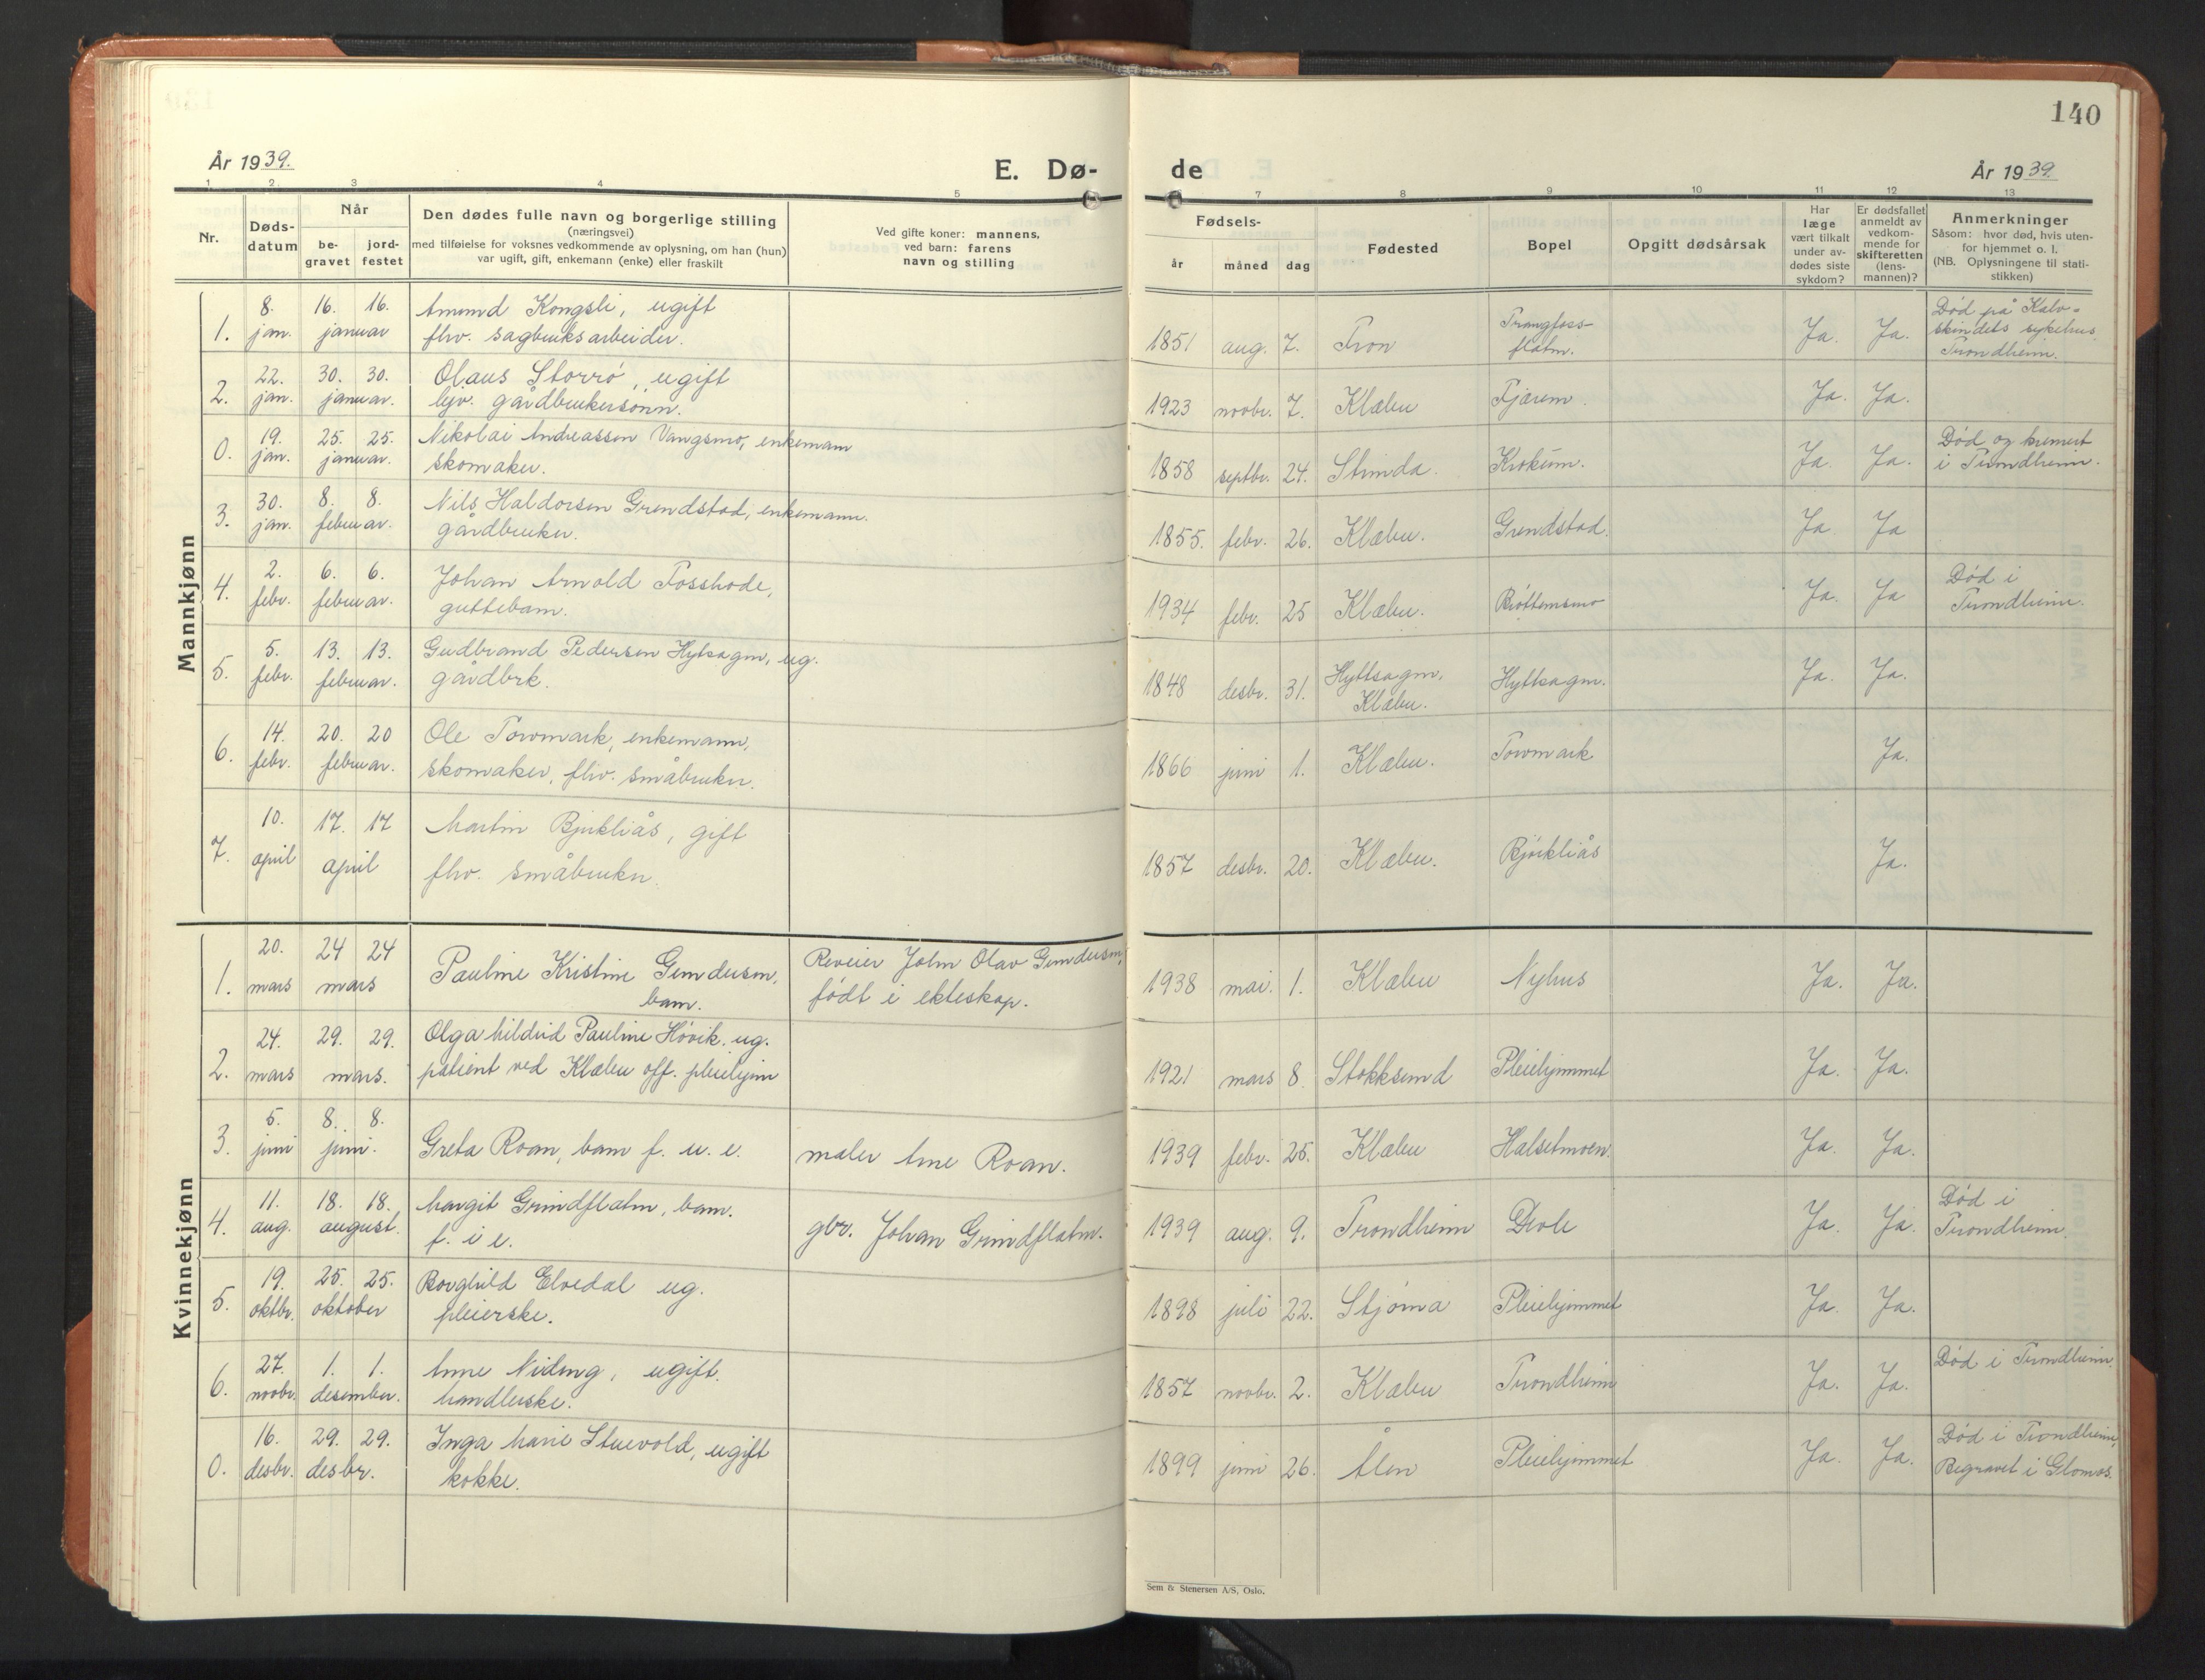 140
År 1939.
E. Dø-
de
År 1939.
1 2 3 4 5
7 8 9 10 11 12 13
Nr.
Døds-
datum
Når
be-
gravet
jord-
festet
Den dødes fulle navn og borgerlige stilling
(næringsvei)
med tilføielse for voksnes vedkommende av oplysning, om han (hun)
var ugift, gift, enkemann (enke) eller fraskilt
Ved gifte koner: mannens,
ved barn: farens
navn og stilling
Fødsels-
år måned dag
Fødested
Bopel
Opgitt dødsårsak
Har
læge
vært tilkalt
under av-
dødes siste
sykdom?
Er dødsfallet
anmeldt av
vedkom-
mende for
skifteretten
(lens-
mannen)?
Anmerkninger
Såsom: hvor død, hvis uten-
for hjemmet o. l.
(NB. Oplysningene til stati-
stikken)
Mannkjønn
1. 8. jan. 16. 16. januar
Amund Kongsli, ugift
fhv. sagbruksarbeider.
1851 aug. 7. Tron
Trangfoss-
flatm.
Ja. Ja.
Død på Kalv-
skindets sykehus
Trondheim.
2. 22. jan. 30. 30. januar.
Olaus Storrø, ugift
hjv. gårdbrukersønn.
1923 novbr. 7. Klæbu Fjærem. Ja. Ja.
0. 19. jan. 25. 25. januar.
Nikolai Andreassen Vangsmo, enkemann
skomaker.
1858 septbr. 24. Strinda. Krokum. Ja. Ja.
Død og kremert
i Trondheim.
3. 30. jan. 8. 8. februar.
Nils Haldorsen Grendstad, enkemann.
gårdbruker.
1855. febr. 26. Klæbu. Grendstad. Ja. Ja
4. 2. febr. 6. 6. februar.
Johan Arnold Fosshode,
guttebarn.
1934 febr. 25 Klæbu. Brøttemsmo Ja. Ja
Død i
Trondheim.
5. 5. febr. 13. 13. februar.
Gudbrand Pedersen Hyttsagen, ug.
gårdbrk.
1848 desbr. 31.
Hyttsagen,
Klæbu.
Hyttsagen. Ja. Ja.
6. 14. febr. 20. 20 februar.
Ole Torvmark, enkemann,
skomaker, fhv. småbruker.
1866 juni 1. Klæbu. Torvmark Ja.
7. 10. april 17. 17 april
Martin Bjørkliås, gift
fhv. småbruker.
1857 desbr. 20. Klæbu. Bjørkliås Ja.
Kvinnekjønn
1. 20. mars 24 24 mars
Pauline Kristine Gundersen,
barn.
Reveier John Olav Gundersen,
født i ekteskap.
1938 mai. 1. Klæbu Nyhus Ja. Ja.
2. 24. mars 29. 29. mars.
Olga Mildrid Pauline Høvik, ug.
patient ved Klæbu off. pleiehjem
1921 mars 8. Stokksund Pleiehjemmet Ja. Ja.
3. 5. juni 8. 8. juni.
Greta Roan, barn f. u. e.
maler Arne Roan.
1939 febr. 25. Klæbu Halsetmoen. Ja. Ja.
4. 11. aug. 18. 18. august.
Margit Grindflatm, barn.
f. i e.
gbr. Johan Grindflatm.
1939 aug. 9. Trondheim Devle Ja. Ja.
Død i
Trondheim.
5. 19. oktbr. 25. 25. oktober
Borghild Elvedal ug.
pleierske.
1898 juli 22. Stjørna Pleiehjemmet Ja. Ja.
6. 27. novbr. 1. 1. desember.
Anne Nideng, ugift.
handlerske.
1857 novbr. 2. Klæbu Trondheim Ja. Ja.
Død i Trondheim.
0. 16. desbr. 29. 29. desbr.
Inga Marie Stuevold, ugift
kokke.
1899 juni 26. Ålen Pleiehjemmet Ja. Ja.
Død i Trondheim,
Begravet i Glåmos.
Sem & Stenersen A/S, Oslo.